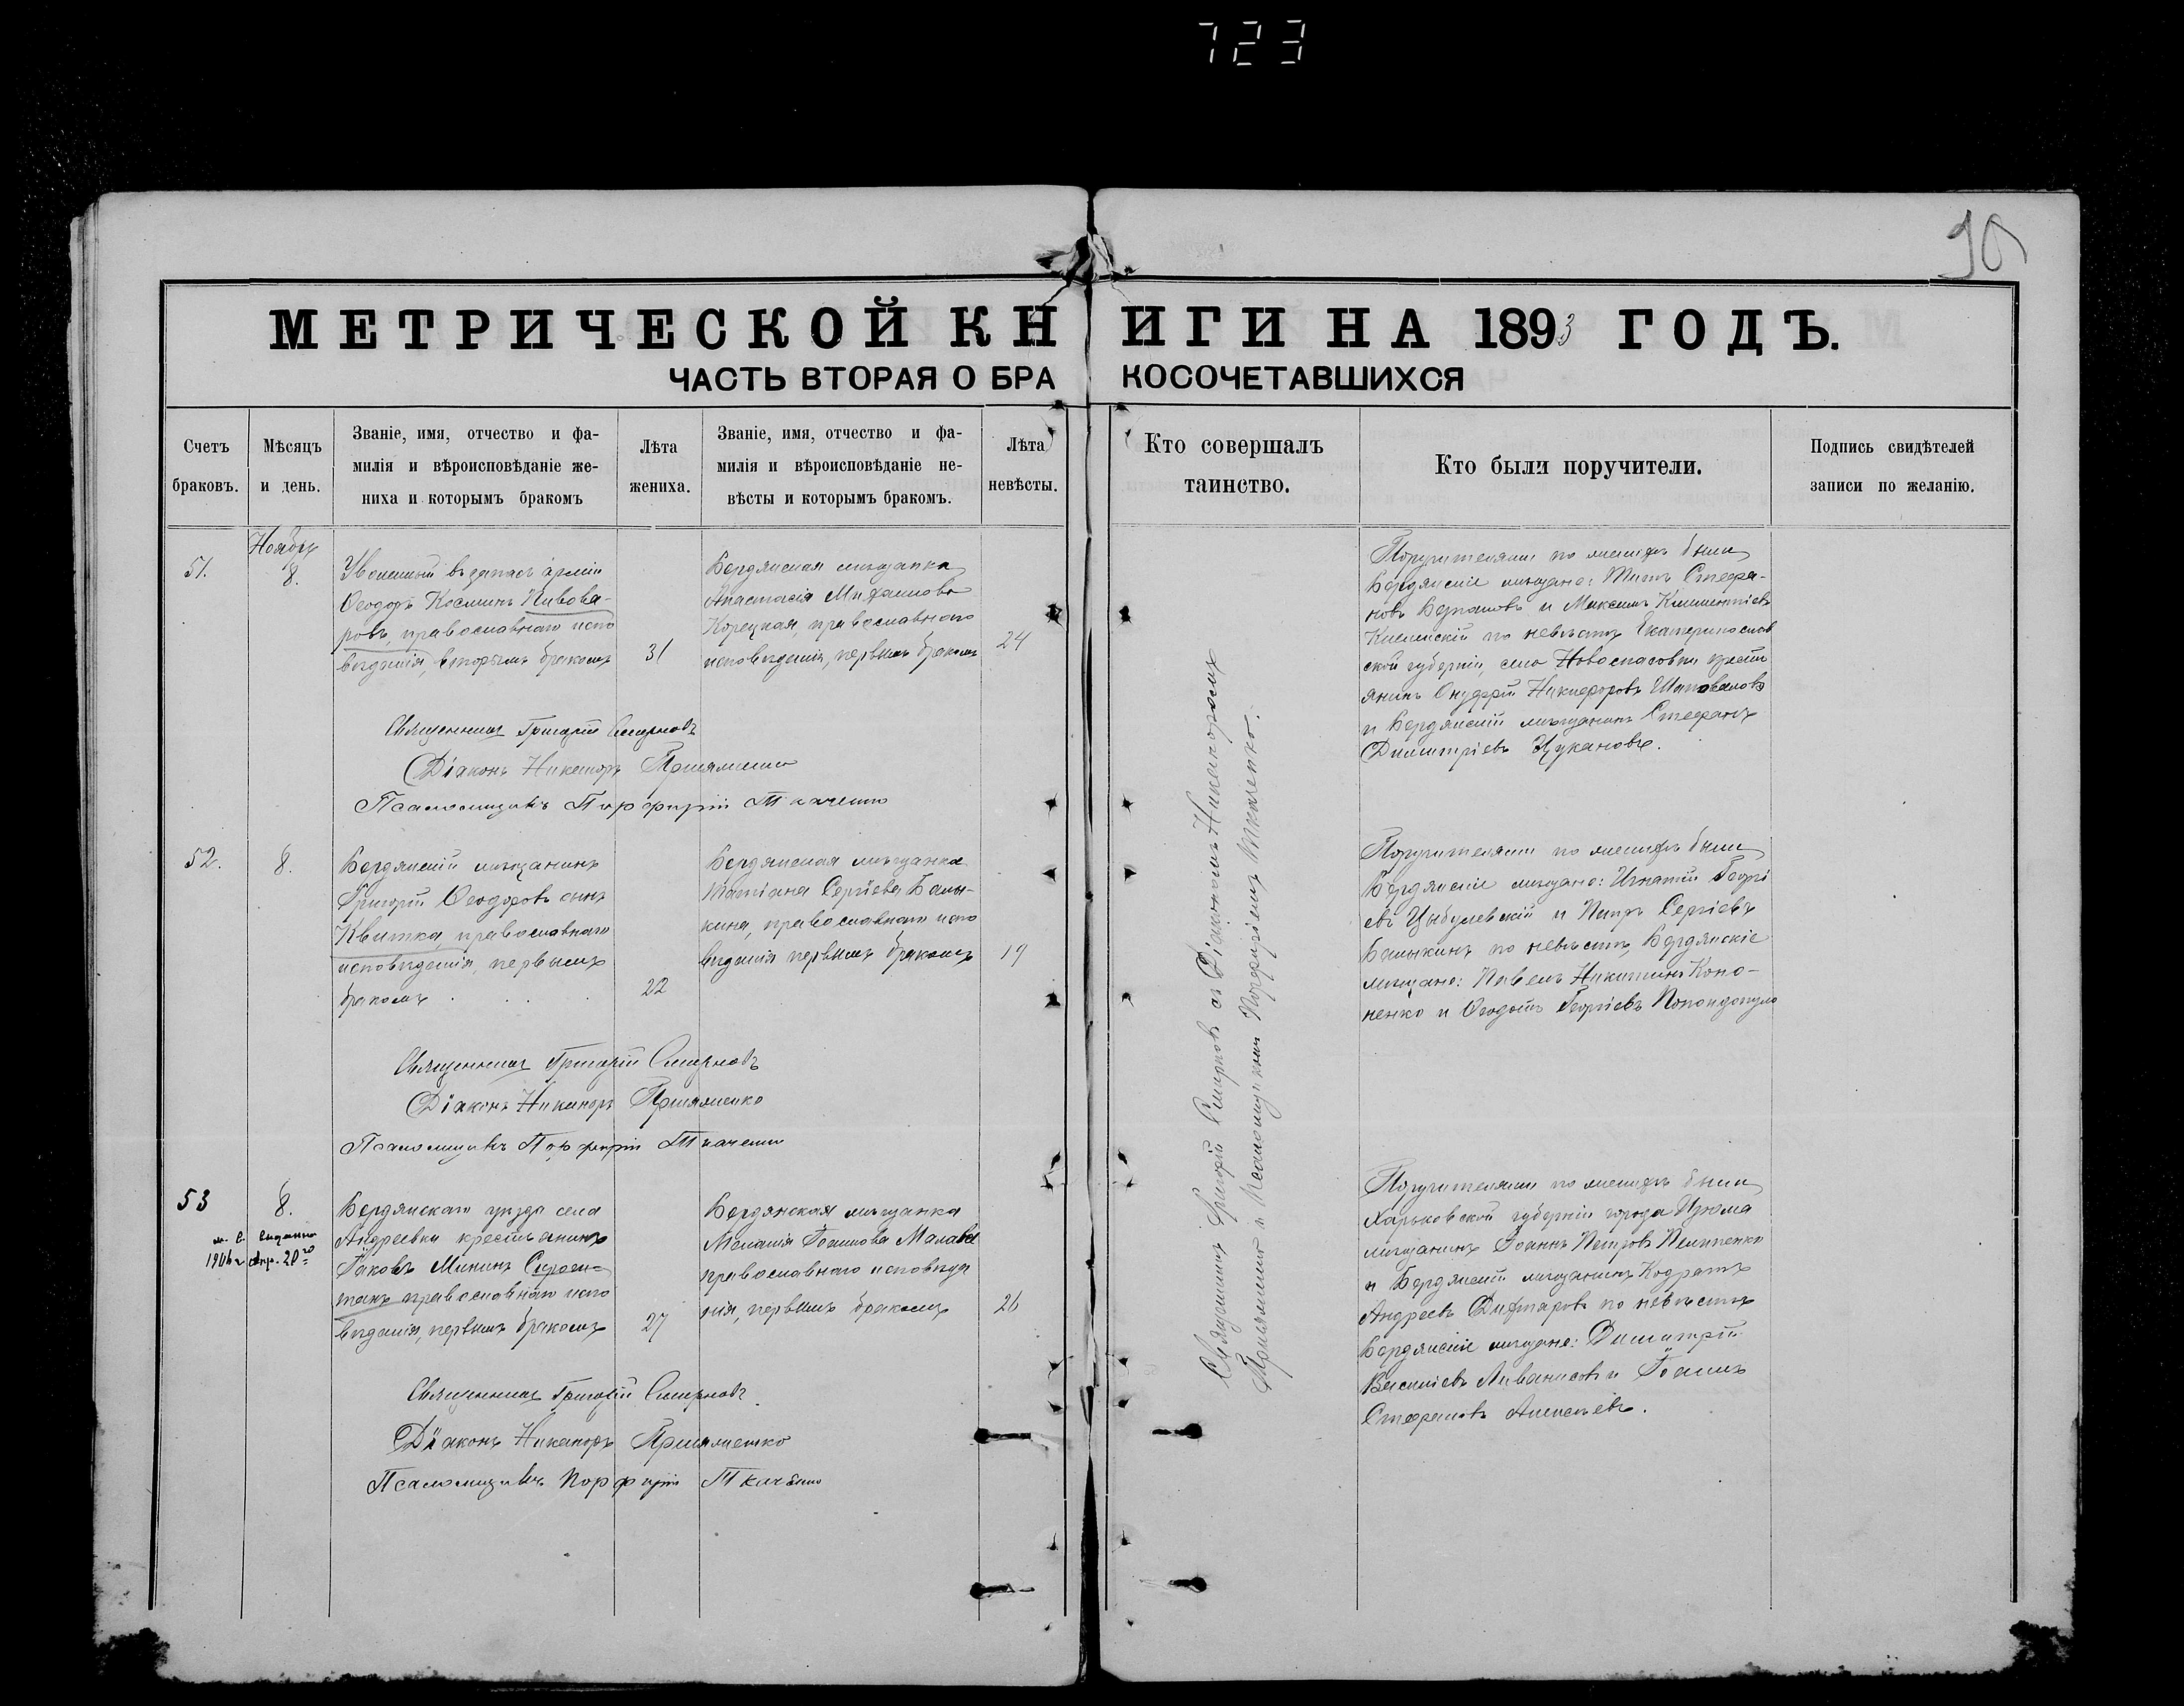 723
90
МЕТРИЧЕСКОЙ КНИГИ НА 1893 ГОДЪ.
ЧАСТЬ ВТОРАЯ О БРАКОСОЧЕТАВШИХСЯ
Счетъ браковъ.
Мѣсяцъ и день.
Званіе, имя, отчество и фамилія и вѣроисповѣданіе жениха и которымъ бракомъ
Лѣта жениха.
Званіе, имя, отчество и фамилія и вѣроисповѣданіе невѣсты и которымъ бракомъ.
Лѣта невѣсты.
Кто совершалъ таинство.
Кто были поручители.
Подпись свидѣтелей записи по желанію.
51.
Ноябрь
8.
Уволенный въ запасъ арміи
Ѳеодоръ Косминъ Пивова-
ровъ, православнаго испо
вѣданія, вторымъ бракомъ
31
Бердянская мѣщанка
Анастасія Михаилова
Корецкая, православнаго
исповѣданія, первымъ бракомъ
24
Поручителями по женихѣ были
Бердянскіе мѣщане: Титъ Стефа-
новъ и Максимъ Климентіевъ
по невѣстѣ Екатеринослав
ской губерніи, села Новоспасовки кресть
янинъ Онуфрій Никифоровъ Шаповаловъ
и Бердянскій мѣщанинъ Стефанъ
Димитріевъ Цукановъ.
Священникъ Григорій Смирновъ
Діаконъ Никаноръ
Псаломщикъ Порфирій Ткаченко
52.
8.
Бердянскій мѣщанинъ
Григорій Ѳеодоровъ сынъ
Квитка, православнаго
исповѣданія, первымъ
бракомъ . . .
22
Бердянская мѣщанка
Татіана Сергіева Балы-
кина, православнаго испо
вѣданія первымъ бракомъ
19
Поручителями по женихѣ были
Бердянскіе мѣщане: Игнатій Георгі
евъ Цыбулевскій и Петръ Сергіевъ
Балыкинъ по невѣстѣ, Бердянскіе
мѣщане: Павелъ Никитинъ Коно-
ненко и Ѳеодотъ Георгіевъ Попондопуло
Священникъ Григорій Смирновъ
Діаконъ Никаноръ
Псаломщикъ Порфирій Ткаченко
53
8.
м. с. выдано
1906 г. Апр. 20го
Бердянскаго уѣзда села
Андреевки крестьянинъ
Іаковъ Мининъ
православнаго испо
вѣданія, первымъ бракомъ
27
Бердянская мѣщанка
Меланія Іоаннова
православнаго исповѣда
нія, первымъ бракомъ
26
Поручителями по женихѣ были
Харьковской губерніи города Изюма
мѣщанинъ Іоаннъ Петровъ
и Бердянскій мѣщанинъ Кодратъ
Андреевъ по невѣстѣ
Бердянскіе мѣщане: Димитрій
Василіевъ и Іоаннъ
Стефановъ Алексѣевъ.
Священникъ Григорій Смирновъ
Діаконъ Никаноръ
Псаломщикъ Порфирій Ткаченко
Священникъ Григорій Смирновъ съ Діакономъ Никаноромъ
и Псаломщикомъ Порфиріемъ Ткаченко.